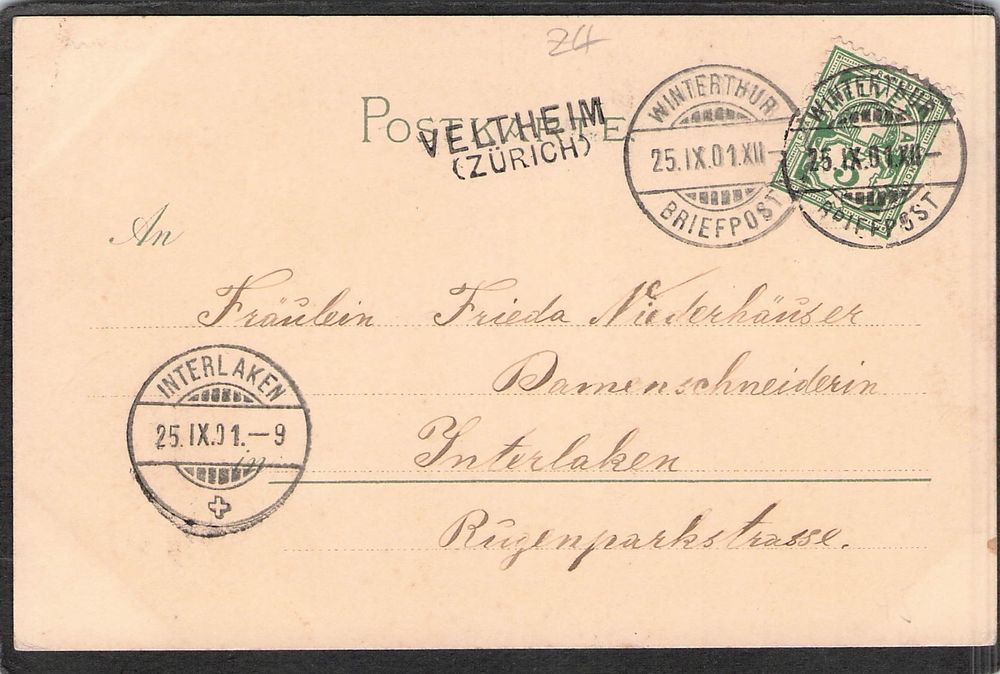 Z4
POSTKARTE
VELTHEIM
(ZÜRICH)
WINTERTHUR
25.IX.01.XII-
BRIEFPOST
WINTERTHUR
25.IX.01.XII-
BRIEFPOST
5
An
Fräulein Frieda Niederhäuser
Damenschneiderin
INTERLAKEN
25.IX.01.-9
in
Interlaken
Rugenparkstrasse.